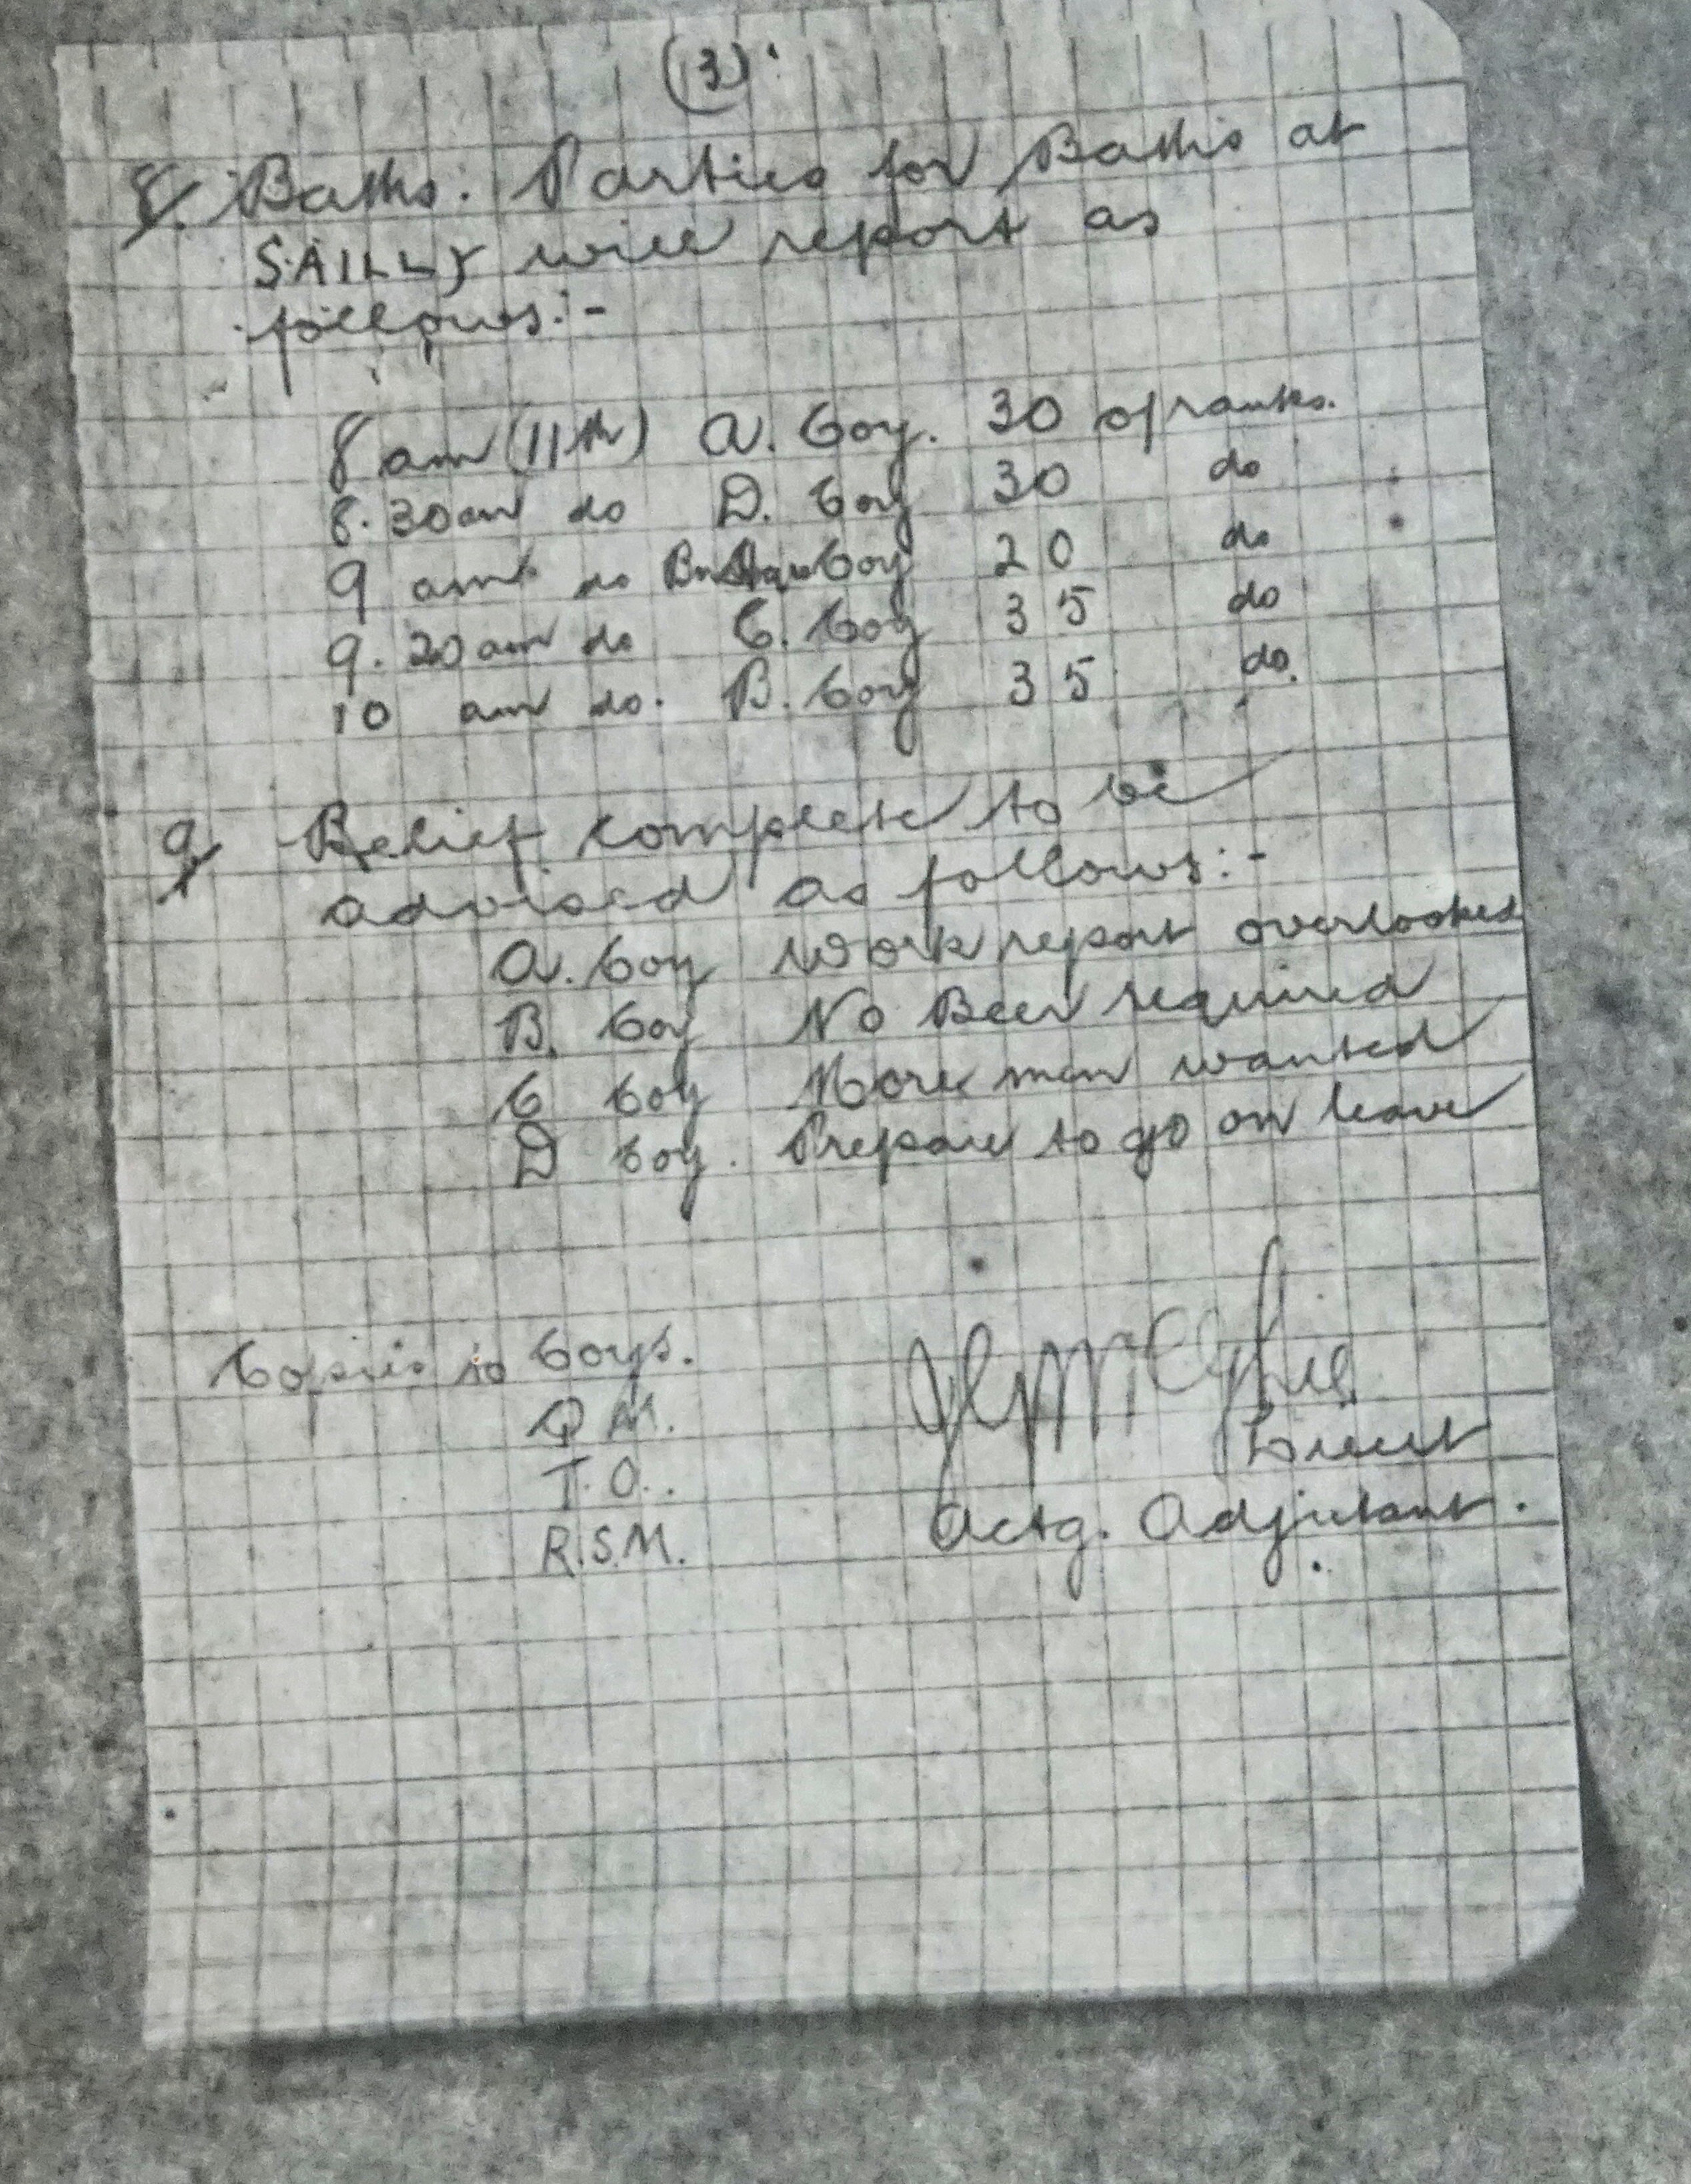 (3).
8. Baths. Parties for Baths at
SAILLY will report as
follows:-
8 am (11th) A. Coy. 30 of ranks.
8.30am do D. Coy 30 do
9 am do Coy 20 do
9.20am do C. Coy 35 do
10 am do. B. Coy 35 do.
9 Relief complete to be
advised as follows:-
A. Coy Work report overlooked
B. Coy No Beer required
C Coy More men wanted
D Coy. Prepare to go on leave
Copies to Coys.
Q M.
T.O..
R.S.M.
Lieut
Actg. Adjutant.